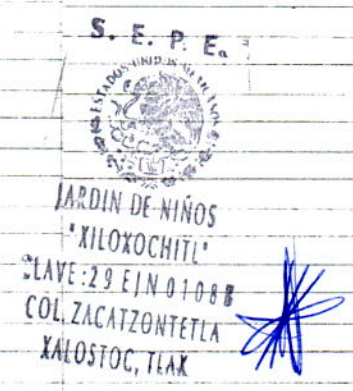 S. E. P. E.
ESTADOS UNIDOS MEXICANOS
JARDIN DE NIÑOS
"XILOXOCHITL"
CLAVE:29 EJN 0108
COL. ZACATZONTETLA
XALOSTOC, TLAX